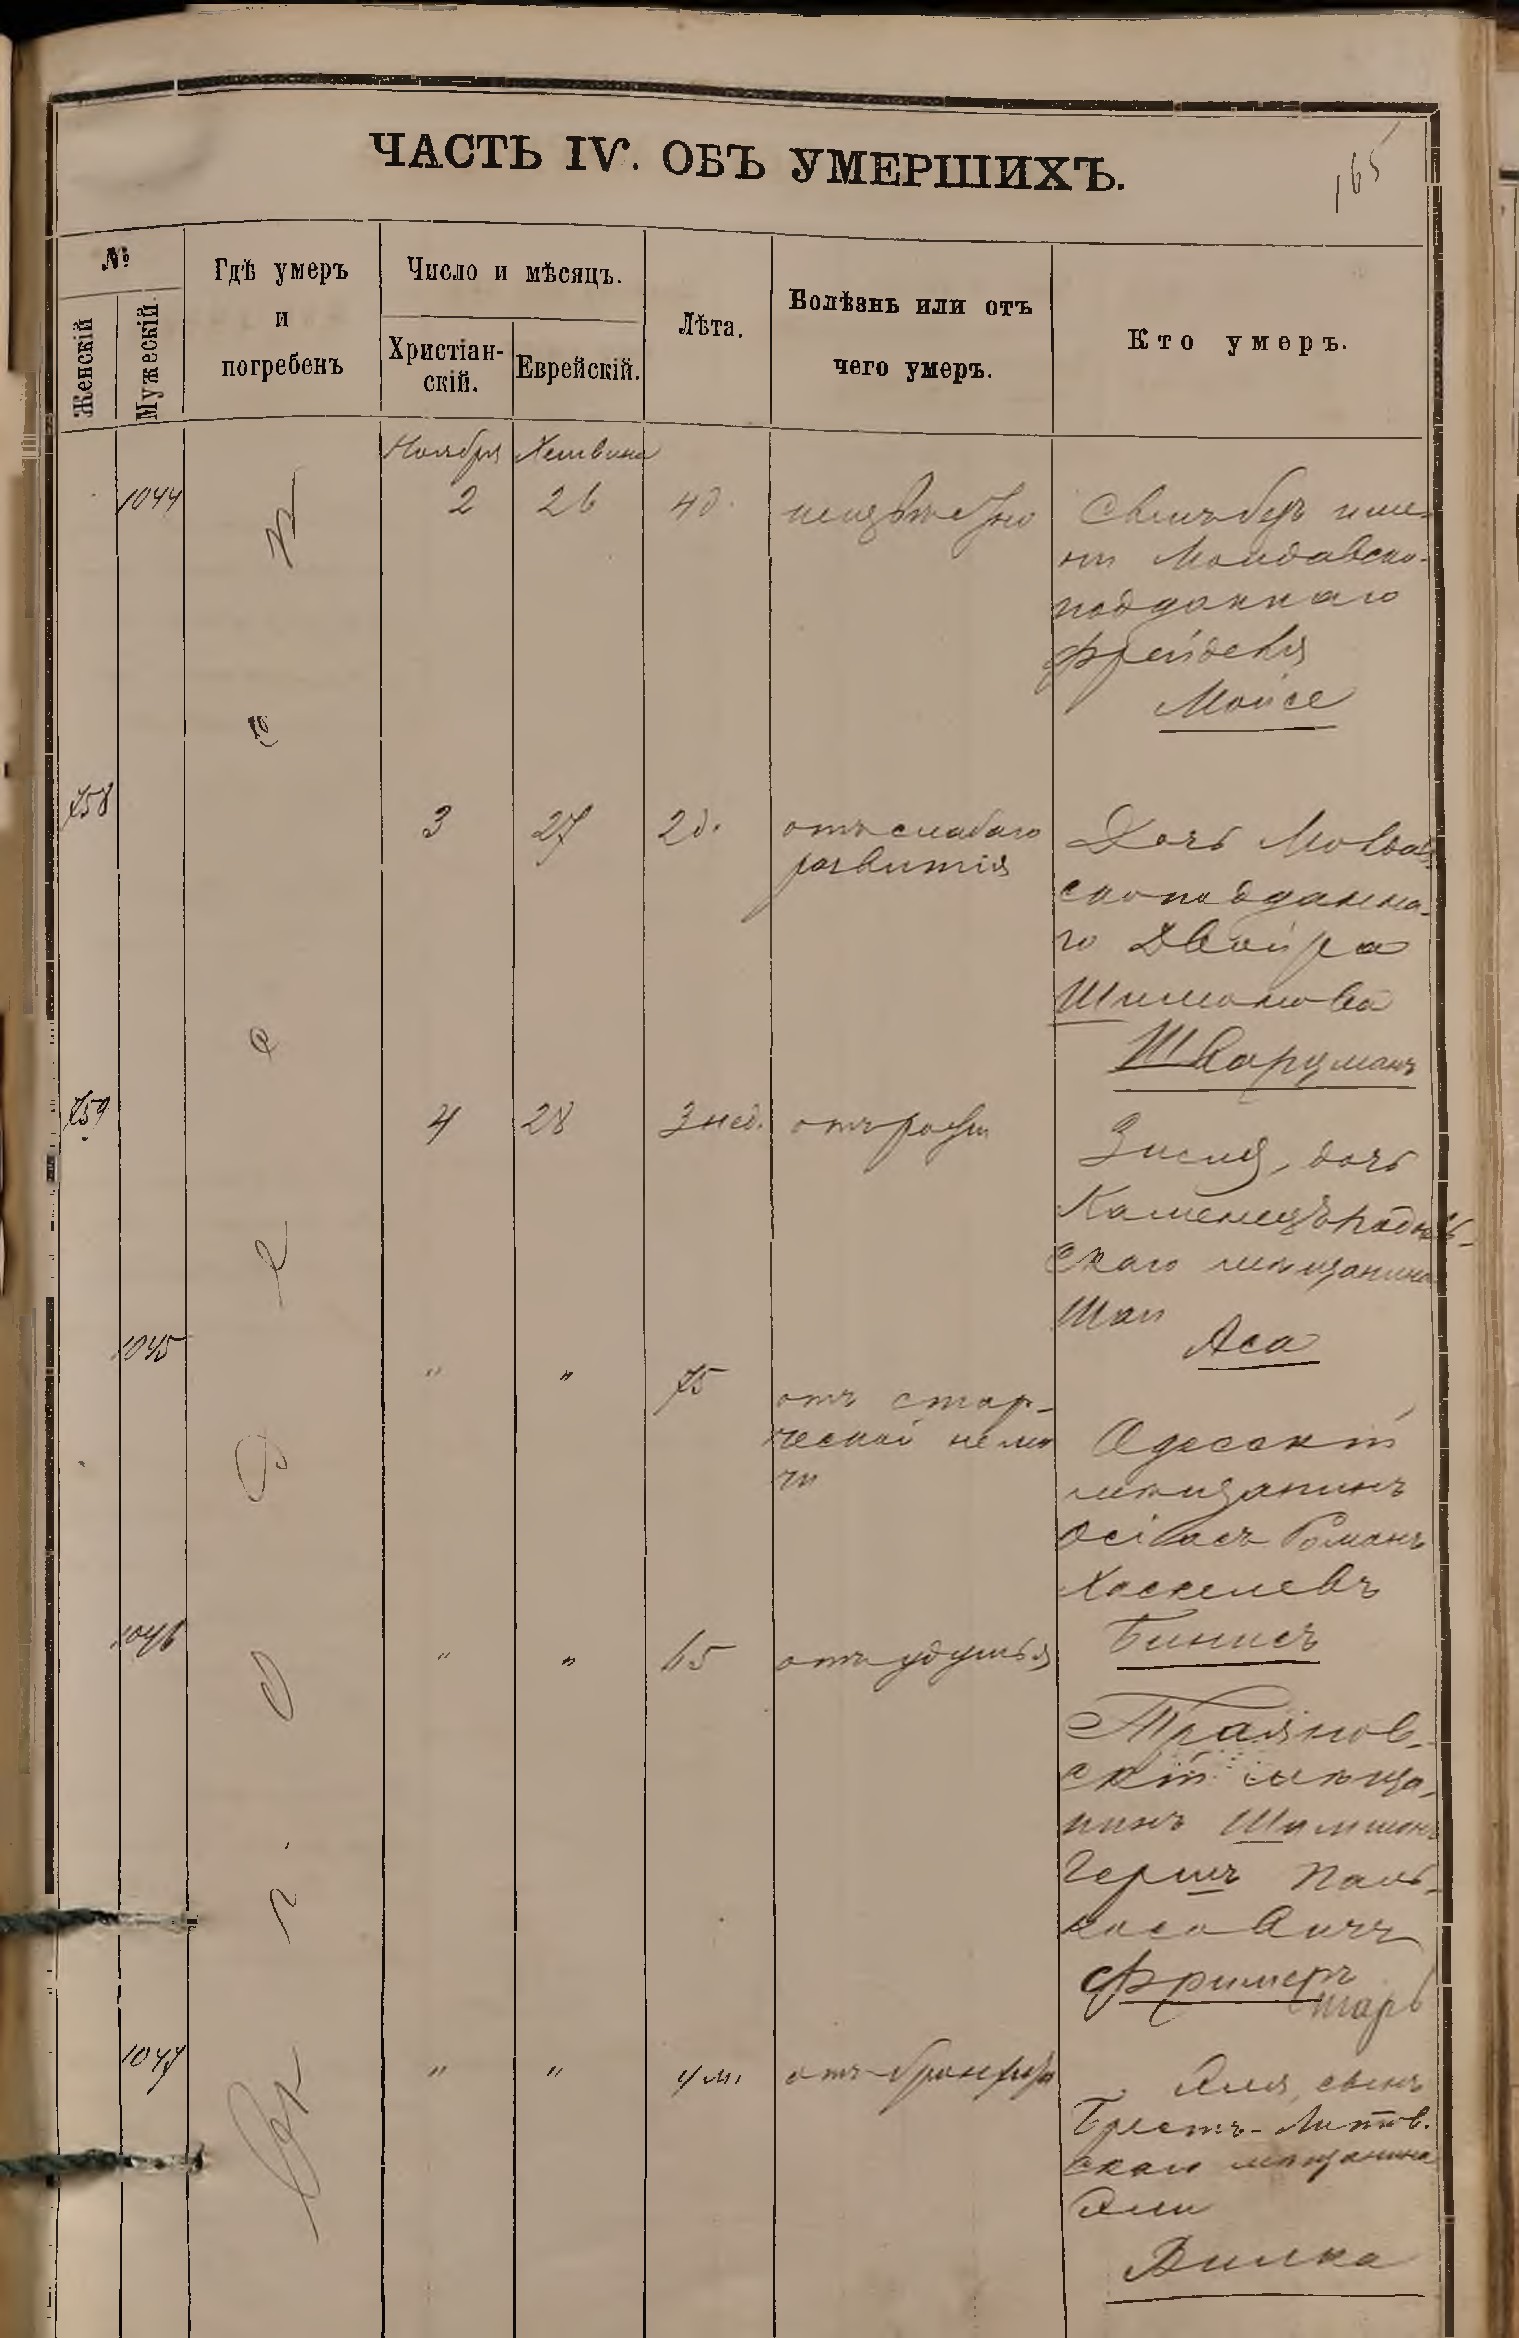 ЧАСТЬ IV. ОБЪ УМЕРШИХЪ.
165
№
Женскій
Мужескій
Гдѣ умеръ
и
погребенъ
Число и мѣсяцъ.
Христіан-
скій.
Еврейскій.
Лѣта.
Болѣзнь или отъ
чего умеръ.
Кто умеръ.
Ноября
1044 2 26 4 д. Сынъ безъ име-
ни Молдавско-
подданнаго
Мойсе
758 3 27 2 д. отъ слабаго
развитія
Дочь Молдав-
скоподданна-
го Двойра
Шимонова
Шварцманъ
759 4 28 3 нед. отъ рожи
Зисля, дочь
Каменецъ Подоль-
скаго мѣщанина
Шаи
Аса
1045 " " 75 отъ стар-
ческой немо
чи
Одесскій
мѣщанинъ
Осій Романъ
Хаскелевъ
Бинисъ
1046 " " 65 отъ удушья
Траянов-
скій мѣща-
нинъ Шимшонъ
Гершъ Паль-
Фримеръ
1047 " " 4 м. отъ бронхита
сынъ
Брестъ-Литов.
скаго мѣщанина
Вилка
Въ г. Одессѣ